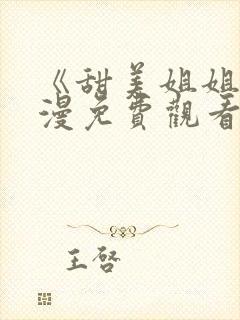 《甜美姐姐
漫免費觀看
王啓